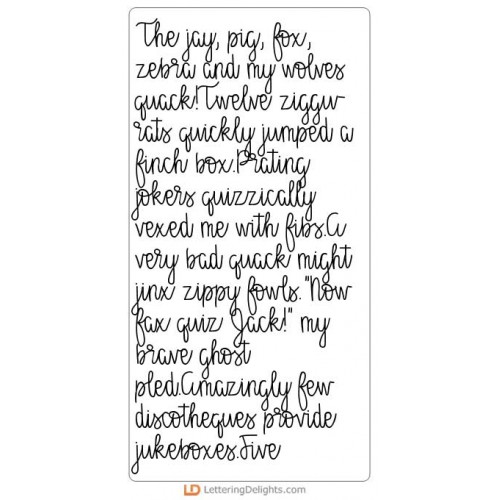 The jay, pig, fox,
zebra and my wolves
quack!Twelve ziggu-
rats quickly jumped a
finch box.Prating
jokers quizzically
vexed me with fibs.A
very bad quack might
jinx zippy fowls."Now
fax quiz Jack!" my
brave ghost
pled.Amazingly few
discotheques provide
jukeboxes.Five
LD LetteringDelights.com